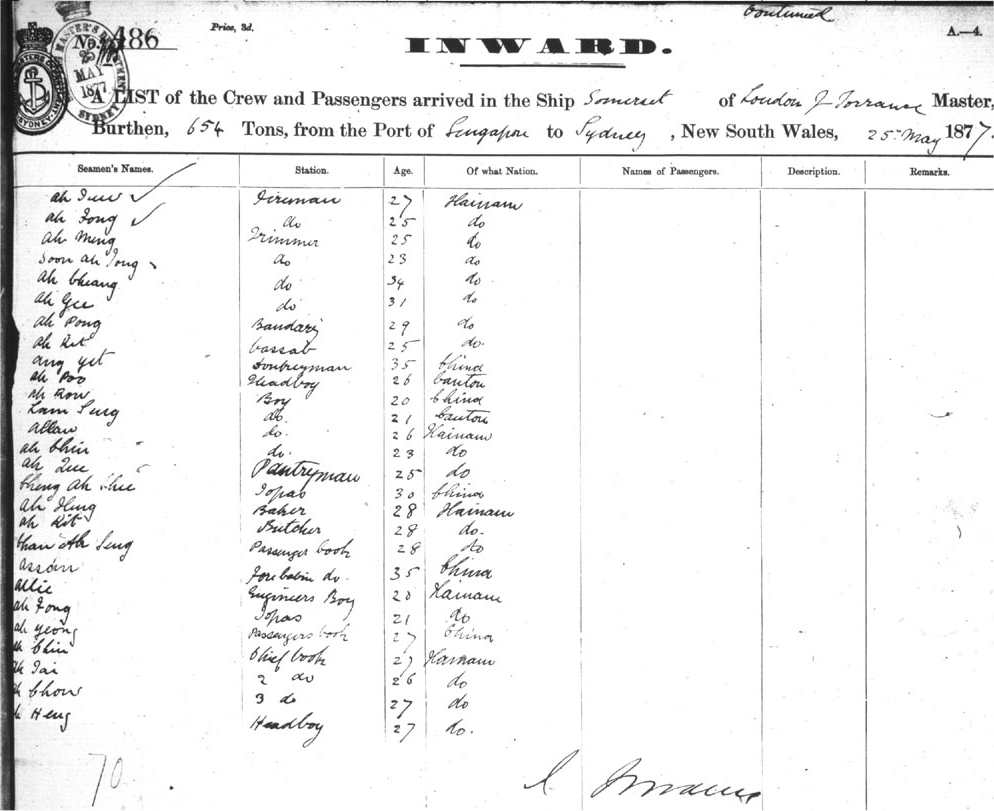 Continued
No. 486
Price, 3d.
A.—4.
25
MAY
1877
SYDNEY
INWARD.
A LIST of the Crew and Passengers arrived in the Ship Somerset of London J Torrance Master,
Burthen, 654 Tons, from the Port of Singapore to Sydney, New South Wales, 25 May 1877.
Seamen's Names. Station. Age. Of what Nation. Names of Passengers. Description. Remarks.
Fireman 27 Hainam
Ah Fong do 25 do
Ah Meng Trimmer 25 do
Soon Ah Tong do 23 do
Ah Cheang do 34 do
Ah Gee do 31 do
Ah Pong Bandarij 29 do
Ah Kit Cassab 25 do.
Ang Yet 35 China
Ah Poo Headboy 26 Canton
Ah Kow Boy 20 China
Lam Seng do. 21 Canton
Allan do. 26 Hainam
Ah Chin do. 23 do
Ah Pantryman 25 do
Cheng Ah Topas 30 China
Ah Heng Baker 28 Hainam
Ah Kit Butcher 28 do.
Chan Ah Seng Passenger Cook 28 do
Assan Fore Cabin do. 35 China
Allie Engineers Boy 20 Hainam
Ah Fong Topas 21 do
Ah Yeong Passengers Cook 27 China
Ah Chin Chief Cook 27 Hainam
Ah Tai 2 do 26 do
Ah Chow 3 do 27 do
Heng Headboy 27 do.
70
Torrance